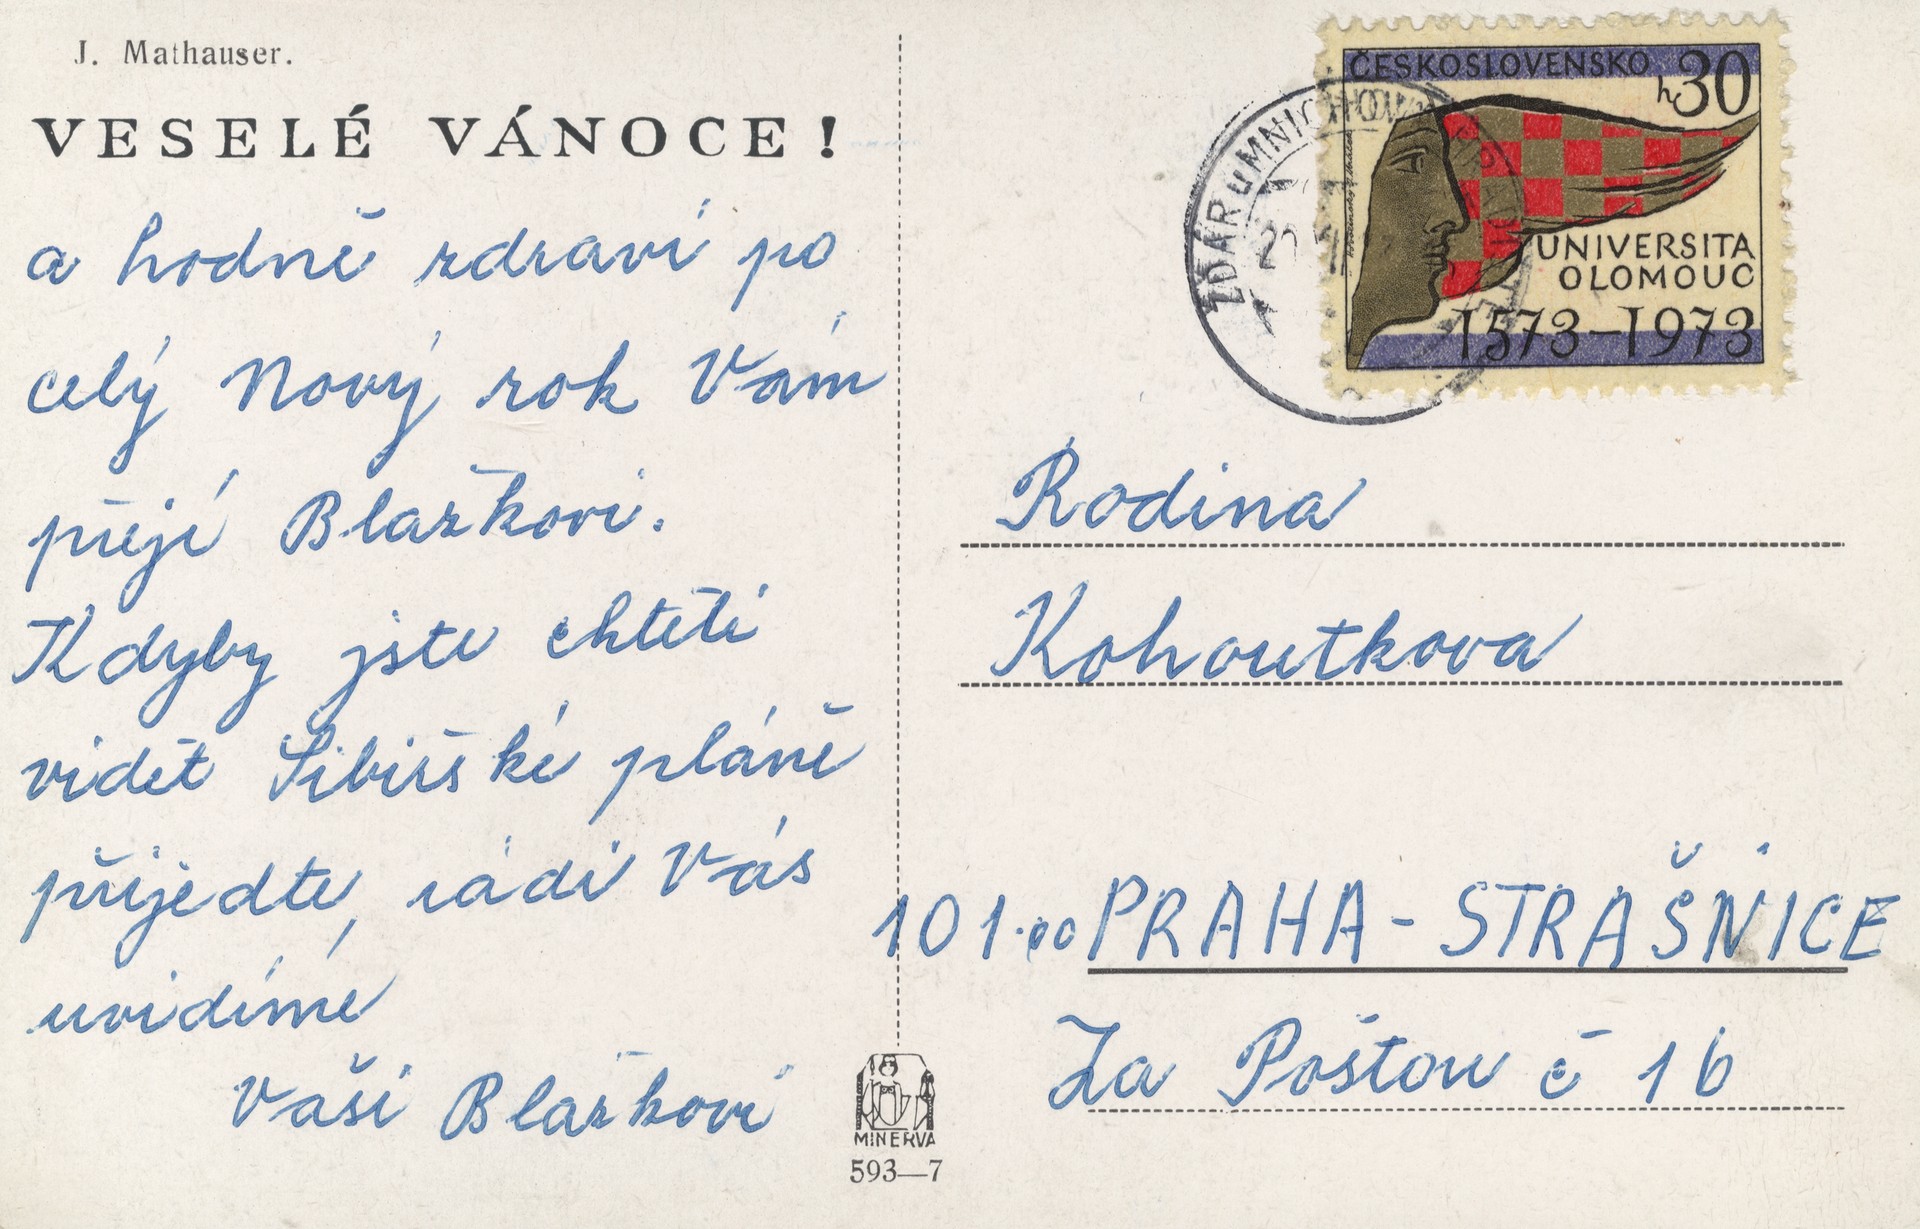 J. Mathauser.
VESELÉ VÁNOCE!
a hodně zdraví po
celý Nový rok Vám
přejí Blažkovi.
Kdyby jste chtěli
vidět Sibiřské pláně
přijeďte, rádi Vás
uvidíme
Vaši Blažkovi
ČESKOSLOVENSKO
h 30
UNIVERSITA
OLOMOUC
1573–1973
ŽĎÁR u MNICHOVA
Rodina
Kohoutkova
101·00 PRAHA-STRAŠNICE
Za Poštou č 16
MINERVA
593—7